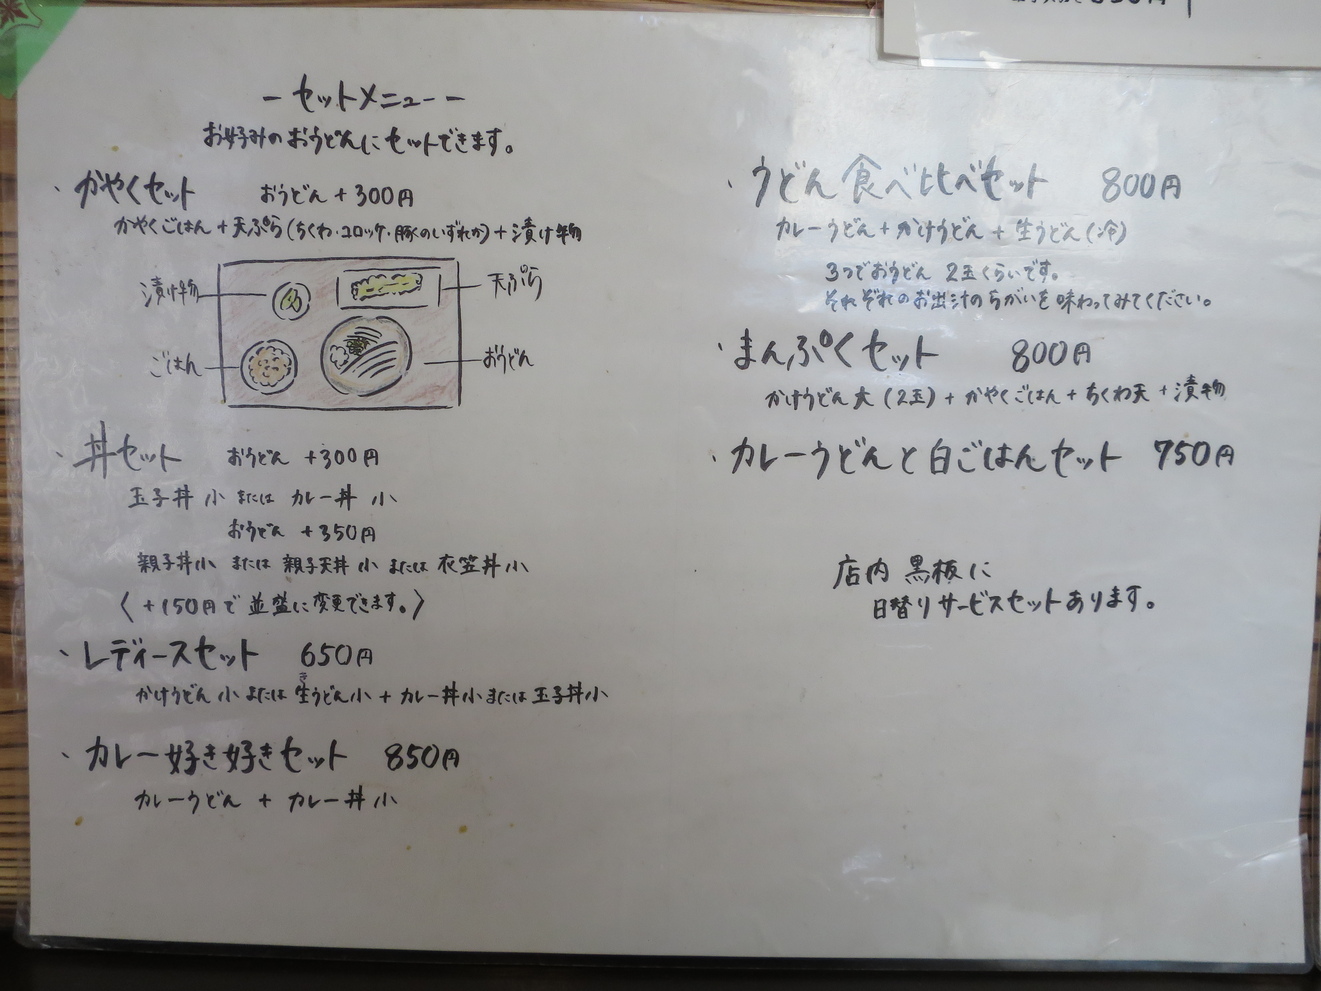 ーセットメニューー
お好みのおうどんにセットできます。
・かやくセット おうどん+300円
かやくごはん+天ぷら(ちくわ・コロッケ・豚のいずれか)+漬け物
漬け物
天ぷら
ごはん
おうどん
・丼セット おうどん +300円
玉子丼 小 または カレー丼 小
おうどん +350円
親子丼小 または 親子天丼 小 または 衣笠丼 小
〈+150円で 並盛に変更できます。〉
・レディースセット 650円
き
かけうどん 小 または 生うどん小 + カレー丼 小 または 玉子丼 小
・カレー好き好きセット 850円
カレーうどん + カレー丼 小
・うどん 食べ比べセット 800円
カレーうどん+かけうどん+生うどん(冷)
3つでおうどん 2玉くらいです。
それぞれのお出汁のちがいを味わってみてください。
・まんぷくセット 800円
かけうどん大(2玉)+かやくごはん+ちくわ天+漬物
・カレーうどんと白ごはんセット 750円
店内 黒板に
日替りサービスセットあります。